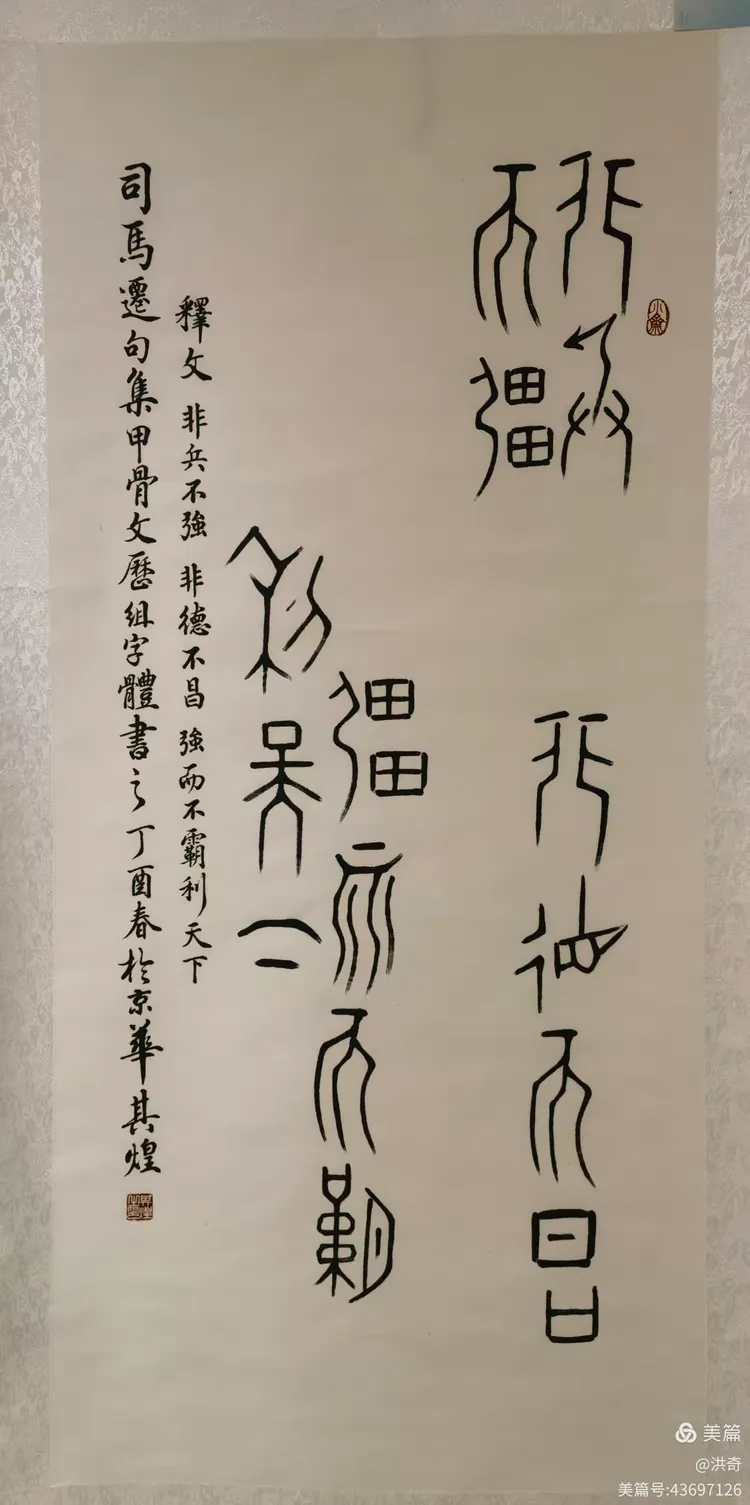 非兵
不強
非德不昌
強而不霸
利天下
釋文 非兵不強 非德不昌 強而不霸利天下
司馬遷句集甲骨文歷組字體書之丁酉春於京華其煌
美篇
@洪奇
美篇号:43697126